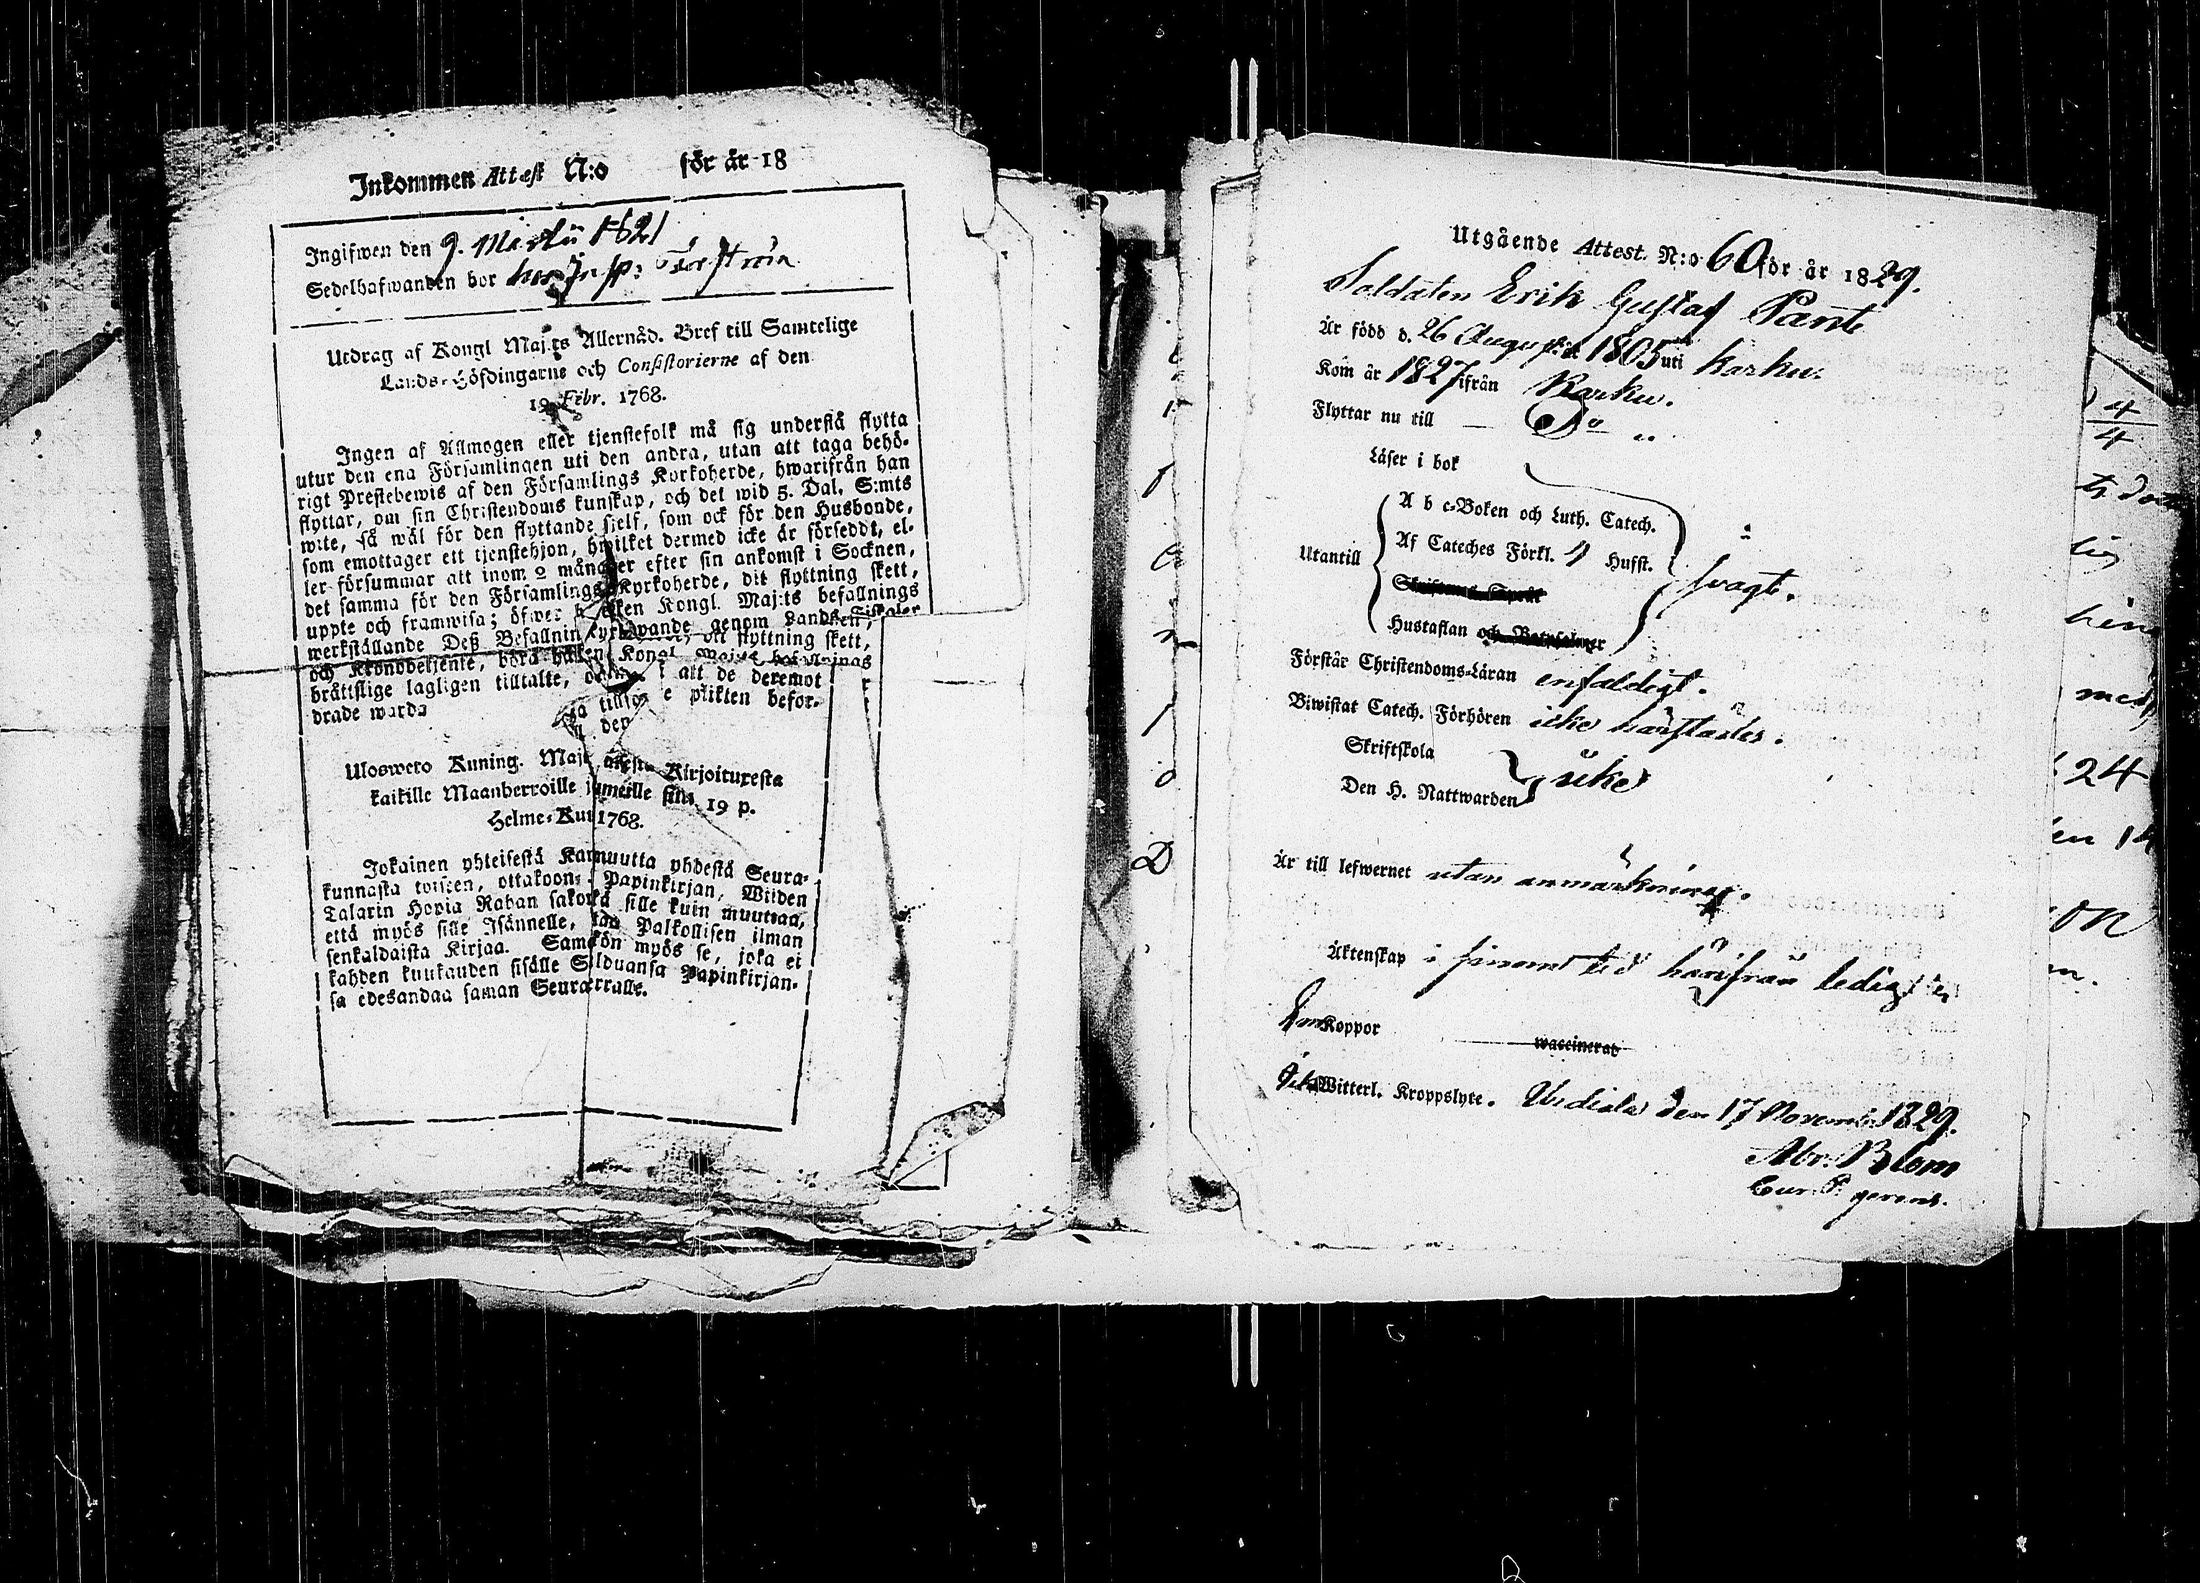 Inkommen Attest N:o för år 18
Ingifwen den 9. Martii 1821
Sedelhafwanden bor hos Insp:
Utdrag af Kongl Maj:ts Allernåd. Bref till Samtelige
Lands-Höfdingarne och Consistorierne af den
19 Febr. 1768.
Ingen af Allmogen eller tjenstefolk må sig understå flytta
utur den ena Församlingen uti den andra, utan att taga behö-
rigt Prestebewis af den Församlings Kyrkoherde, hwarifrån han
flyttar, om sin Christendoms kunskap, och det wid 5. Dal. S:mts
wite, så wäl för den flyttande sjelf, som ock för den Husbonde,
som emottager ett tjenstehjon, hwilket dermed icke är förseddt, el-
ler försummar att inom 2 månader efter sin ankomst i Socknen,
det samma för den Församlings Kyrkoherde, dit flyttning skett,
uppte och framwisa; öfwer hwilken Kongl. Maj:ts befallnings
werkställande Deß Befallnin genom Landtfiskaler
och Kronobetjente, böra
bråttslige lagligen tilltalte, att de deremot
drade warda plikten befor-
den
Ulosweto Kuning. Maj Kirjoituxesta
kaikille Maanherroille ja muille siitä 19 p.
Helme-Kuu 1768.
Jokainen yhteisestä Kansasta muutta yhdestä Seura-
kunnasta toiseen, ottakoon Papinkirjan, Wiiden
Talarin Hopia Rahan sakolla sille kuin muuttaa,
että myös sille Isännelle, Palkollisen ilman
senkaldaista Kirjaa. Samakön myös se, joka ei
kahden kuukauden sisälle Silduansa Papinkirjan-
sa edesandaa saman Seurakunnalle.
Utgående Attest. N:o 60 för år 1829.
Soldaten Erik Gustaf Pant
Är född d. 26 Augusti 1805 uti Karku.
Kom år 1827 ifrån Karku.
Flyttar nu till Do
Läser i bok
A b c-Boken och Luth. Catech.
Utantill Af Cateches Förkl. 4 Hufst. svagt.
Hustaflan och
Förstår Christendoms-Läran enfaldigt.
Biwistat Catech. Förhören icke härstädes.
Skriftskola
Den H. Nattwarden icke
Är till lefwernet utan anmärkning.
Äktenskap i sinom tid härifrån ledig
Koppor waccinerad
Witterl. Kroppslyte. Urdiala den 17 November 1829.
Abr: Blom
Cur. P. gerens.